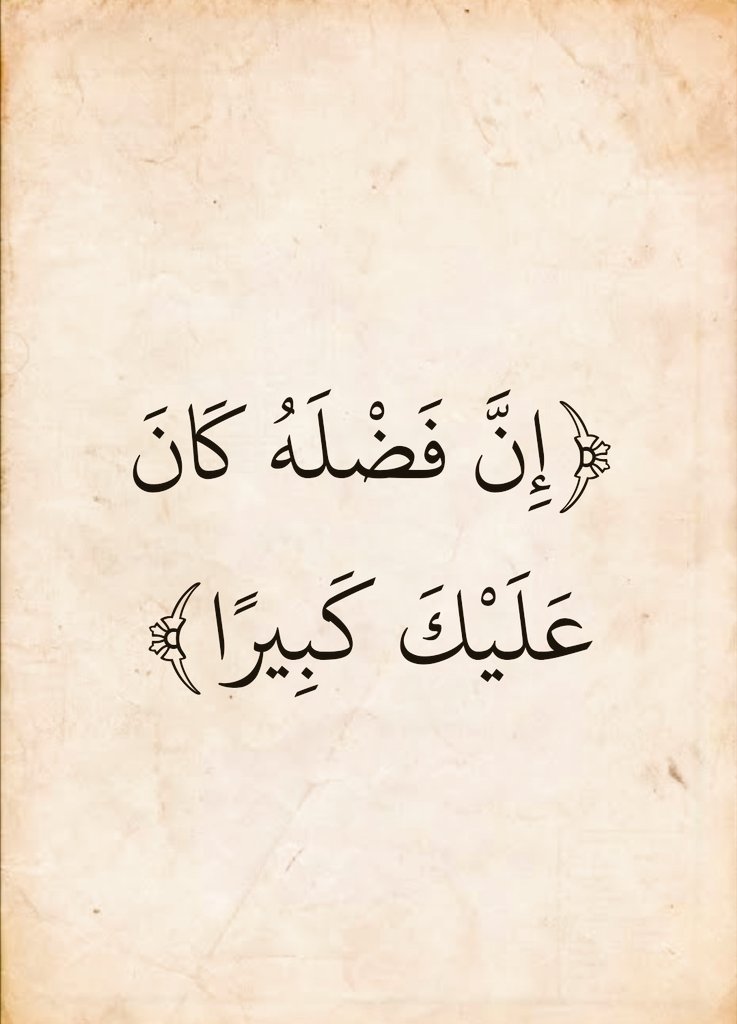 ﴿إِنَّ فَضْلَهُ كَانَ
عَلَيْكَ كَبِيرًا﴾